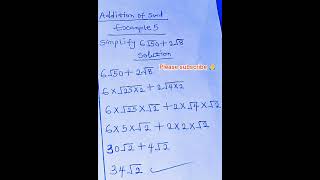 Addition of Surd
Example 5
Simplify 6√50 + 2√8
Solution
6√50 + 2√8
Please subscribe 🙏
6 × √25×2 + 2√4×2
6 × √25 × √2 + 2×√4×√2
6 × 5 × √2 + 2×2×√2
30√2 + 4√2
34√2